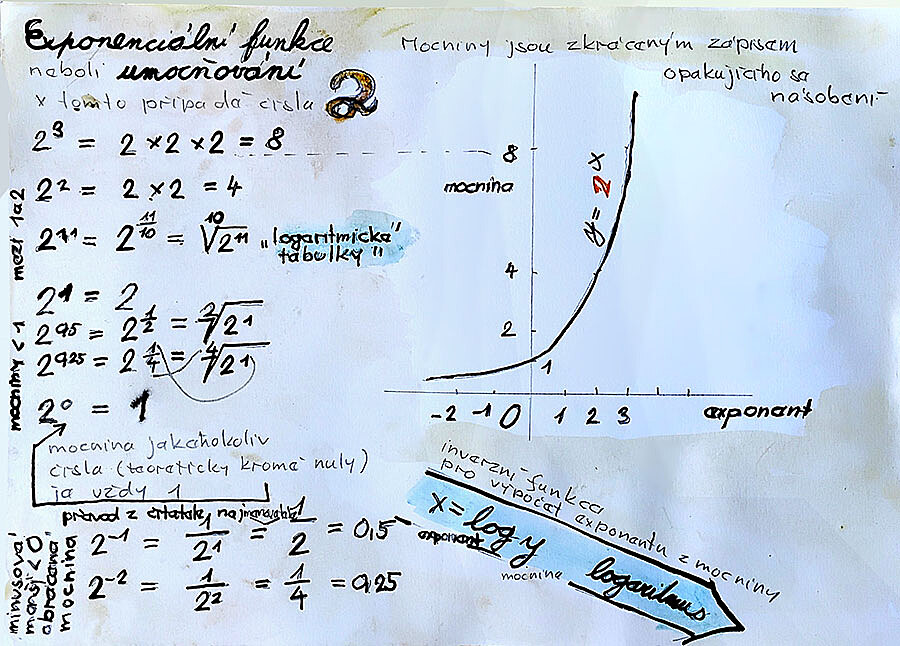 Exponenciální funkce
neboli umocňování
v tomto případě čísla 2
Mocniny jsou zkráceným zápisem
opakujícího se
násobení
2³ = 2 × 2 × 2 = 8
2² = 2 × 2 = 4
mezi 1 a 2
2^1,1 = 2^11/10 = ¹⁰√2¹¹ „logaritmické"
tabulky"
2¹ = 2
mocniny < 1
2^0,5 = 2^1/2 = ²√2¹
2^0,25 = 2^1/4 = ⁴√2¹
2⁰ = 1
mocnina jakéhokoliv
čísla (teoreticky kromě nuly)
je vždy 1
převod z čitatele na jmenovatele
minusová
menší < 0
"obrácená"
mocnina
2⁻¹ = 1/2¹ = 1/2 = 0,5
2⁻² = 1/2² = 1/4 = 0,25
8
mocnina
y = 2ˣ
4
2
1
-2 -1 0 1 2 3 exponent
inverzní funkce
pro výpočet exponentu z mocniny
x = log y
exponent
mocnina
logaritmus